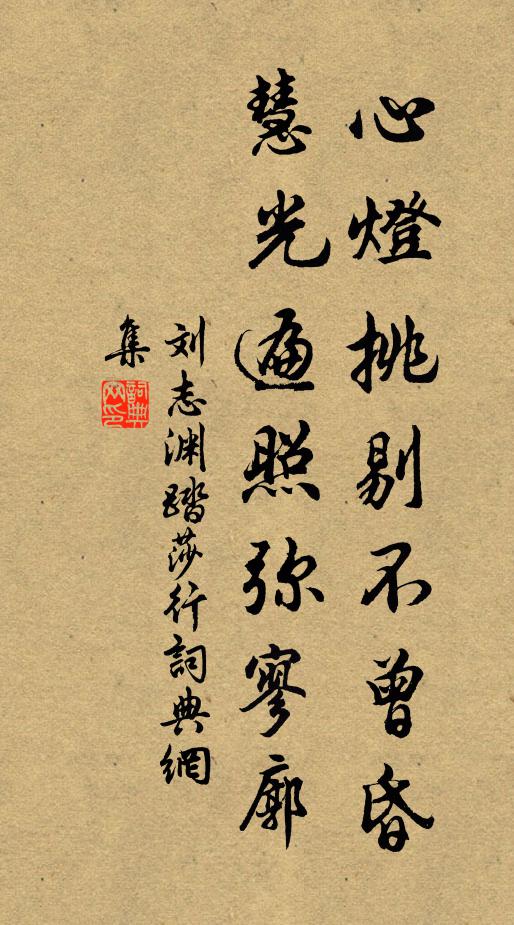 心燈挑剔不曾昏
慧光遍照弥寥廓
刘志渊踏莎行詞典網
集
詞典網印